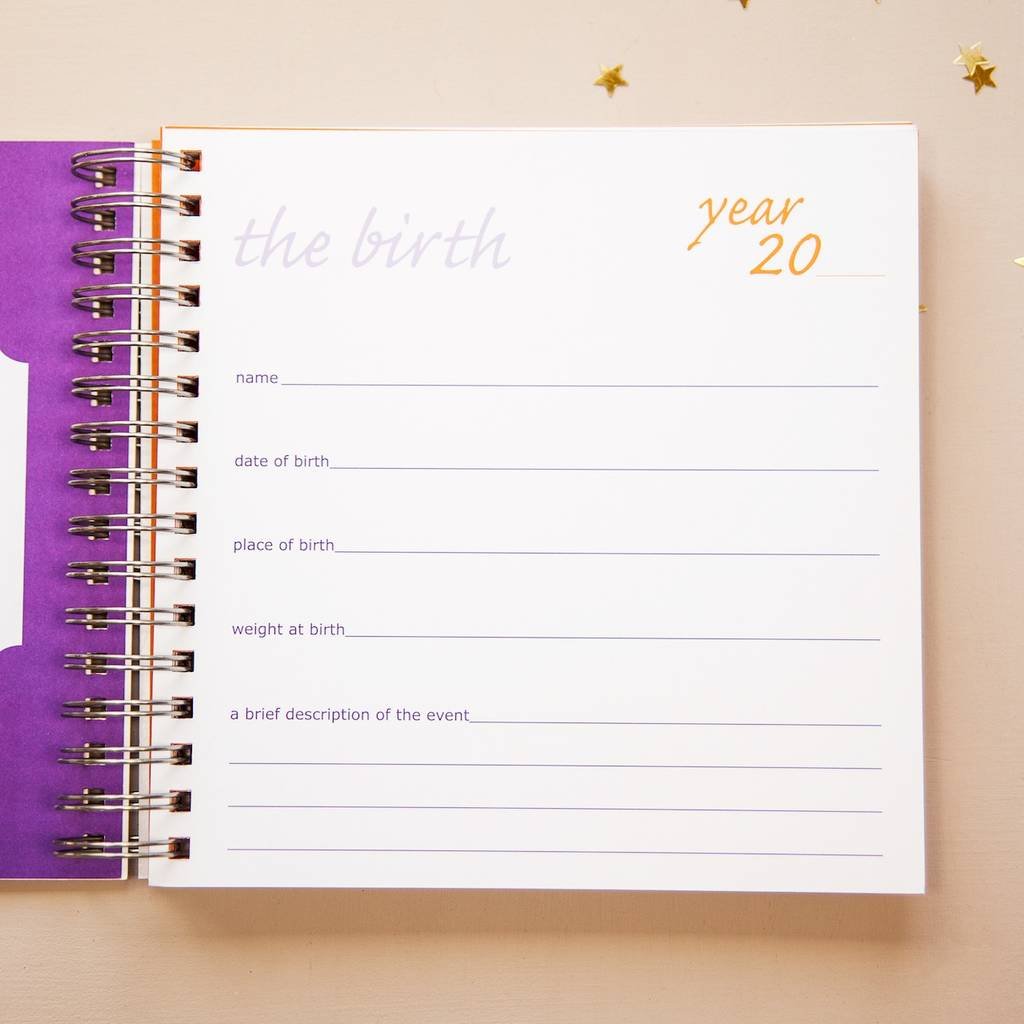 the birth
year
20
name
date of birth
place of birth
weight at birth
a brief description of the event